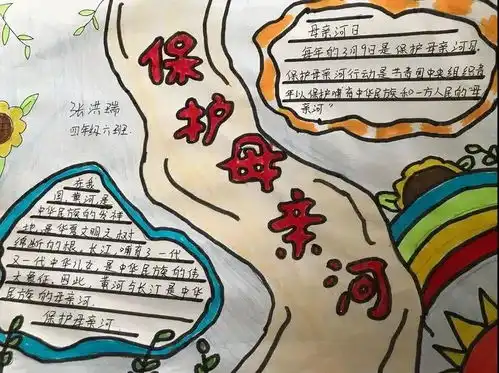 保护母亲河
张洪瑞
四年级六班.
母亲河日
每年的3月9日是保护母亲河日,
保护母亲河行动是共青团中央组织青
年以保护哺育中华民族和一方人民的“母
亲河”
在我
国,黄河是
中华民族的发祥
地,是华夏文明之树
绵断的根。长江,哺育了一代
又一代中华儿女,是中华民族的伟
大象征。因此,黄河与长江是中华
民族的母亲河。
保护母亲河.